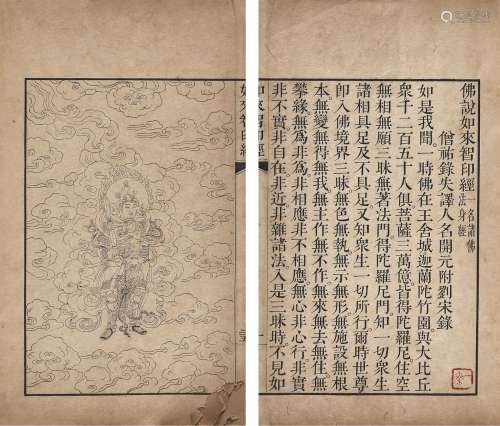 佛說如來智印經一名諸佛法身經
僧祐錄失譯人名開元附劉宋錄
如是我聞一時佛在王舍城迦蘭陀竹園與大比丘
衆千二百五十人俱菩薩三萬億皆得陀羅尼住空
無相無願三昧無著法門得陀羅尼門知一切衆生
諸相具足及不具足又知衆生一切所行爾時世尊
卽入佛境界三昧無色無執無示無形無施設無根
本無變無得無我無主作無不作無來無去無住無
攀緣無爲非爲非相應非不相應無心非心行非實
非不實非自在非近非雜諸法入是三昧時不見如
如來智印經